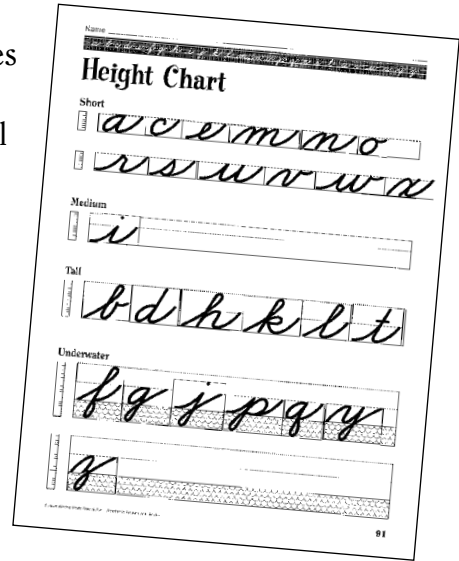 es
l
Name
Height Chart
Short
a c e m n o
r s u v w x
Medium
i
Tall
b d h k l t
Underwater
f g j p q y
z
91